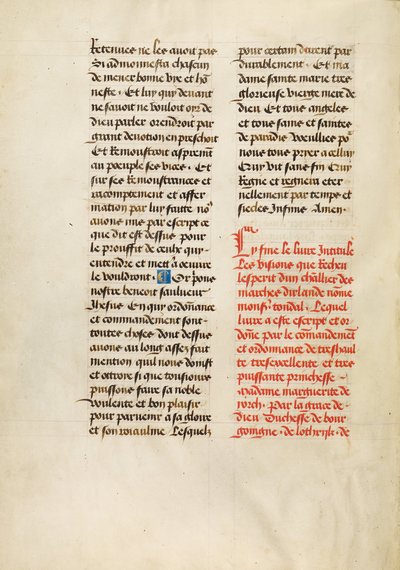 Retenues ne les auoit pas
Si admonnesta chascun
de mener bonne vye et hõ
neste. Et luy qui deuant
ne sauoit ne vouloit oyr de
dieu parler orendroit par
grant deuotion en preschoit
Et Remoustroit asprement
au poeuple ses vices. Et
sur ses Remoustrances et
racomptement et affer
mation par luy faitte no9
auons mis par escript ce
que dit est dessus pour
le prouffit de ceulx qui
entendre et mettre a oeuure
le vouldront. Or prions
nostre benoit saulueur
Jhesus En qui ordonnance
et commandement sont
touttes choses dont dessus
auons au long assez fait
mention quil nous doinst
et ottroie si que tousiours
puissons faire sa noble
voulente et bon plaisir
pour paruenir a sa gloire
et son roiaulme Lesquelz
pour certain durent par
durablement. Et ma
dame sainte marie tres
glorieuse vierge mere de
dieu Et tous angeles
et tous sains et saintes
de paradis Voeullies po9
nous tous pryer a celluy
Quy vit sans fin Quy
Regne et regnera eter
nellement par temps et
siecles Infinis Amen.
Cy fine le liure Intitule
Les visions que Recheu
lesperit dun chlallier des
marches dirlande nõme
monsr tondal. Lequel
liure a este escript et or
donne par le comãdement
et ordonnance de treshaulte
te tresexellente et tres
puissante princhesse
Madame marguerite de
yorch. Par la grace de
dieu Duchesse de bour
goingne. de lothrijk. de